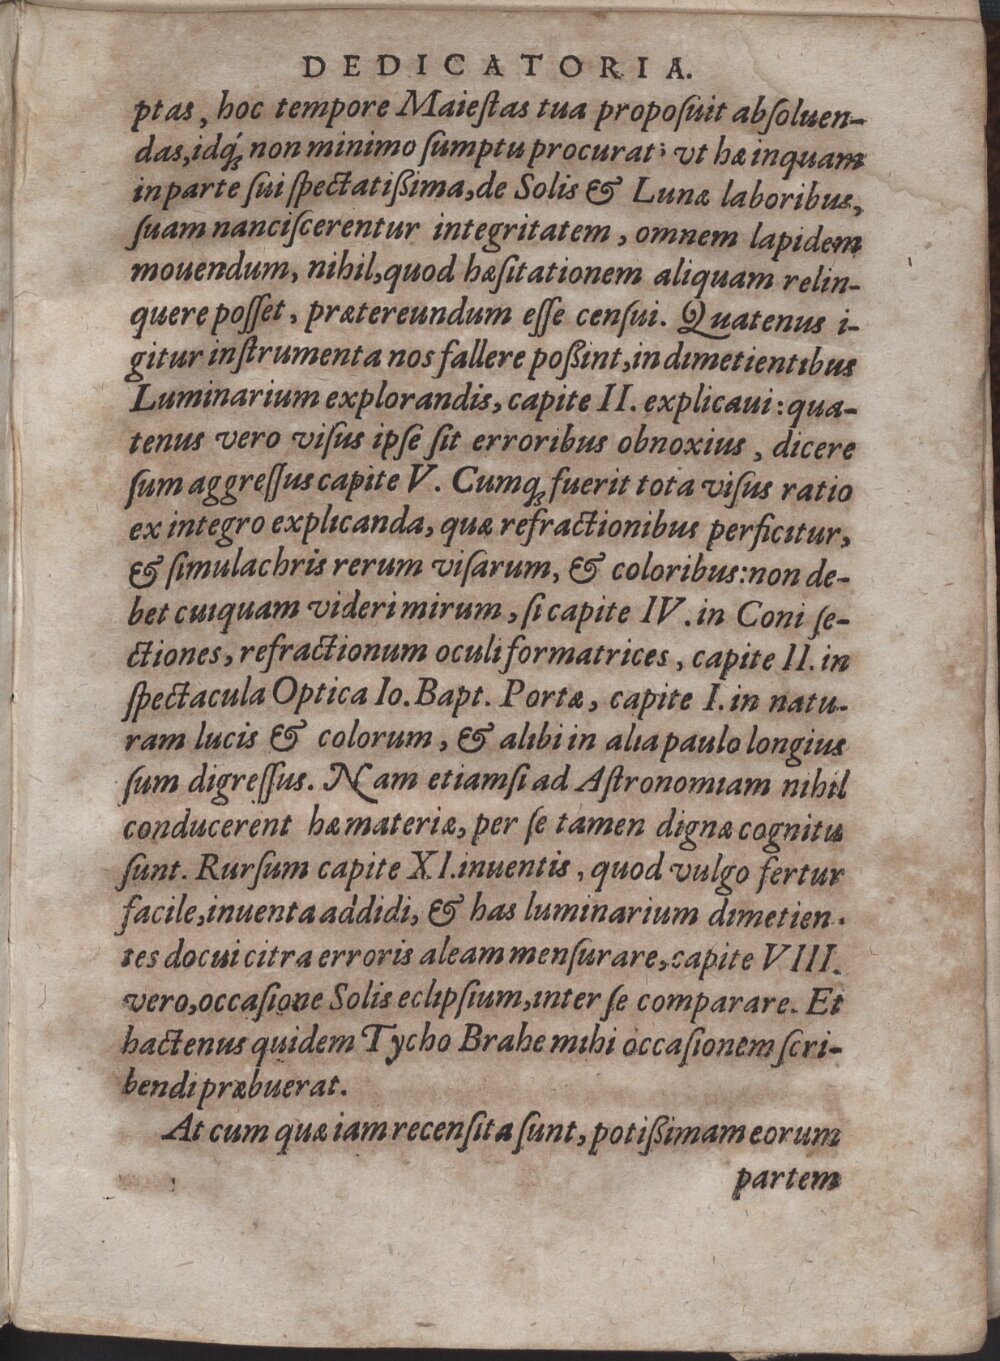 DEDICATORIA.
ptas, hoc tempore Maieſtas tua propoſuit abſoluen-
das, idq́; non minimo ſumptu procurat; vt hæ inquam
in parte ſui ſpectatißima, de Solis & Lunæ laboribus,
ſuam nanciſcerentur integritatem, omnem lapidem
mouendum, nihil, quod hæſitationem aliquam relin-
quere poſſet, prætereundum eſſe cenſui. Quatenus i-
gitur inſtrumenta nos fallere poßint, in dimetientibus
Luminarium explorandis, capite II. explicaui: qua-
tenus vero viſus ipſe ſit erroribus obnoxius, dicere
ſum aggreſſus capite V. Cumq; fuerit tota viſus ratio
ex integro explicanda, quæ refractionibus perficitur,
& ſimulachris rerum viſarum, & coloribus: non de-
bet cuiquam videri mirum, ſi capite IV. in Coni ſe-
ctiones, refractionum oculi formatrices, capite II. in
ſpectacula Optica Io. Bapt. Portæ, capite I. in natu-
ram lucis & colorum, & alibi in alia paulo longius
ſum digreſſus. Nam etiamſi ad Aſtronomiam nihil
conducerent hæ materiæ, per ſe tamen dignæ cognitu
ſunt. Rurſum capite XI. inuentis, quod vulgo fertur
facile, inuenta addidi, & has luminarium dimetien-
tes docui citra erroris aleam menſurare, capite VIII.
vero, occaſione Solis eclipſium, inter ſe comparare. Et
hactenus quidem Tycho Brahe mihi occaſionem ſcri-
bendi præbuerat.
At cum quæ iam recenſita ſunt, potißimam eorum
partem